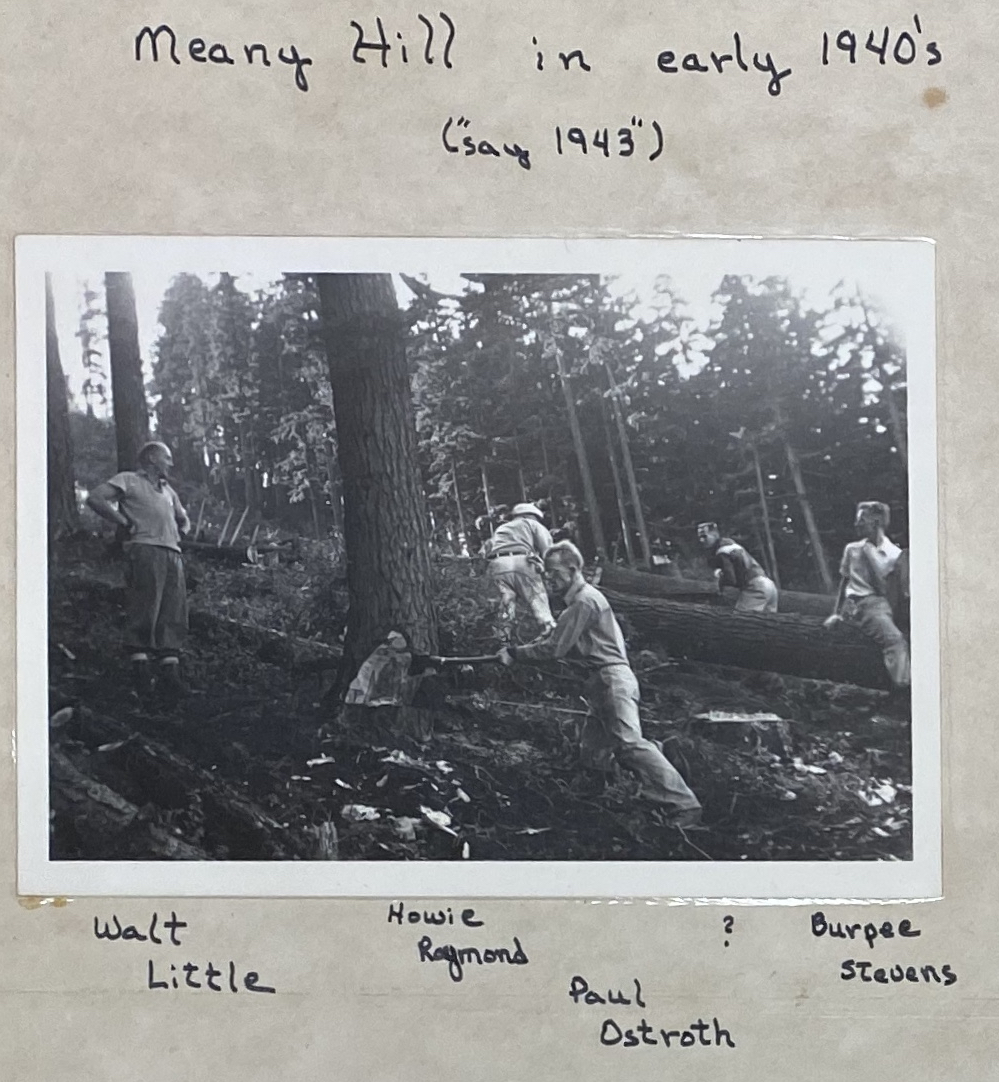 Meany Hill in early 1940's
("say 1943")
Walt
Little
Howie
Raymond
Paul
Ostroth
?
Burpee
Stevens